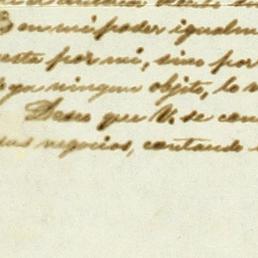 en mi poder igualm
esta por mi, sino por
ya ningun objeto, lo
Deseo que V. se con
sus negocios, contando